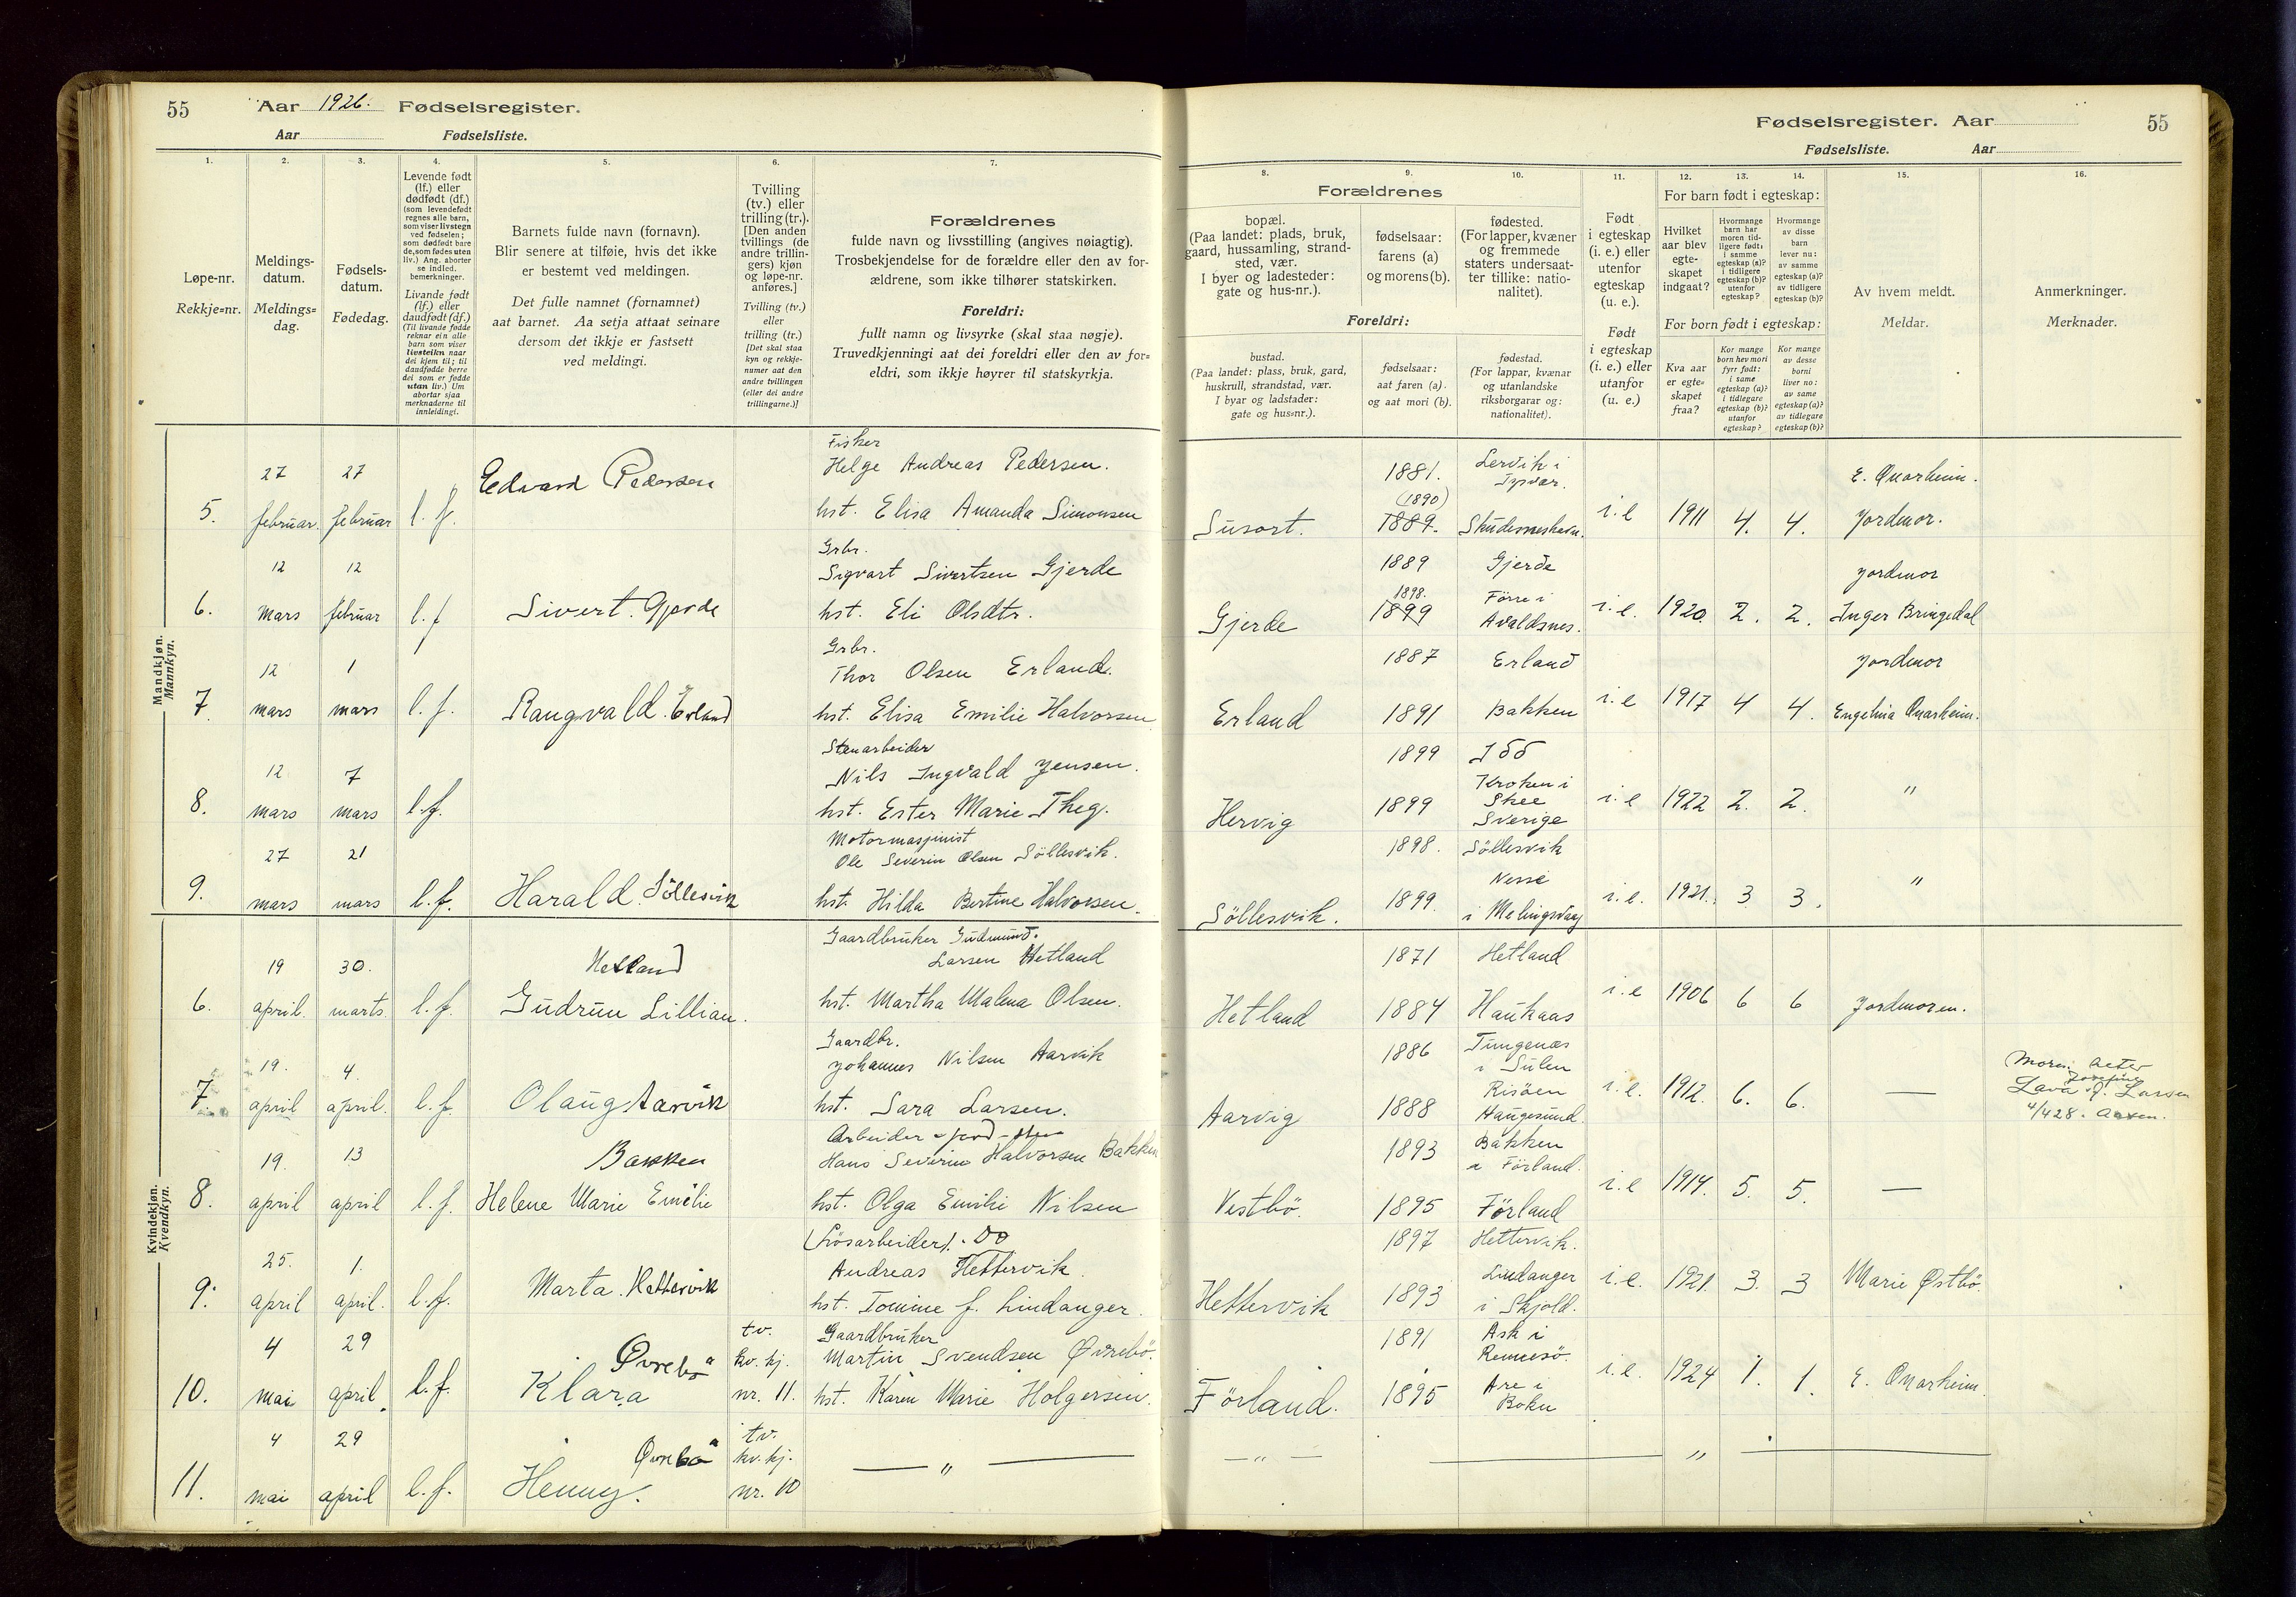 55 Aar 1926. Fødselsregister.
Aar Fødselsliste.
Fødselsregister. Aar 55
Fødselsliste. Aar
1. 2. 3. 4. 5. 6. 7.
8. 9. 10. 11. 12. 13. 14. 15. 16.
Løpe-nr.
Rekkje=nr.
Meldings-
datum.
Meldings=
dag.
Fødsels-
datum.
Fødedag.
Levende født
(lf.) eller
dødfødt (df.)
(som levendefødt
regnes alle barn,
som viser livstegn
ved fødselen;
som dødfødt bare
de, som fødes uten
liv.) Ang. aborter
se indled.
bemerkninger.
Livande født
(lf.) eller
daudfødt (df.)
(Til livande fødde
reknar ein alle
barn som viser
livsteikn naar
dei kjem til; til
daudfødde berre
dei som er fødde
utan liv.) Um
abortar sjaa
merknaderne til
innleidingi.
Barnets fulde navn (fornavn).
Blir senere at tilføie, hvis det ikke
er bestemt ved meldingen.
Det fulle namnet (fornamnet)
aat barnet. Aa setja attaat seinare
dersom det ikkje er fastsett
ved meldingi.
Tvilling
(tv.) eller
trilling (tr.).
[Den anden
tvillings (de
andre trillin-
gers) kjøn
og løpe-nr.
anføres.]
Tvilling (tv.)
eller
trilling (tr.)
[Det skal staa
kyn og rekkje-
numer aat den
andre tvillingen
(eller dei andre
trillingarne.)]
Forældrenes
fulde navn og livsstilling (angives nøiagtig).
Trosbekjendelse for de forældre eller den av for-
ældrene, som ikke tilhører statskirken.
Foreldri:
fullt namn og livsyrke (skal staa nøgje).
Truvedkjenningi aat dei foreldri eller den av for=
eldri, som ikkje høyrer til statskyrkja.
Forældrenes
bopæl.
(Paa landet: plads, bruk,
gaard, hussamling, strand-
sted, vær.
I byer og ladesteder:
gate og hus-nr.).
fødselsaar:
farens (a)
og morens (b).
fødested.
(For lapper, kvæner
og fremmede
staters undersaat-
ter tillike: natio-
nalitet).
Foreldri:
bustad.
(Paa landet: plass, bruk, gard,
huskrull, strandstad, vær.
I byar og ladstader:
gate og hus=nr.).
fødselsaar:
aat faren (a).
og aat mori (b).
fødestad.
(For lappar, kvænar
og utanlandske
riksborgarar og:
nationalitet).
Født
i egteskap
(i. e.) eller
utenfor
egteskap
(u. e.).
Født
i egteskap
(i. e.) eller
utanfor
(u. e.)
For barn født i egteskap:
Hvilket
aar blev
egte-
skapet
indgaat?
Hvormange
barn har
moren tid-
ligere født:
i samme
egteskap (a)?
i tidligere
egteskap (b)?
utenfor
egteskap?
Hvormange
av disse
barn
lever nu:
av samme
egteskap (a)?
av tidligere
egteskap (b)?
For born født i egteskap:
Kva aar
er egte=
skapet
fraa?
Kor mange
born hev mori
fyrr født:
i same
egteskap (a)?
i tidlegare
egteskap (b)?
utanfor
egteskap?
Kor mange
av desse
borni
liver no:
av same
egteskap (a)?
av tidlegare
egteskap (b)?
Av hvem meldt.
Meldar.
Anmerkninger.
Merknader.
Mandkjøn.
Mannkyn.
5. 27 februar. 27 februar l. f. Edvard Pedersen
Fisker
Helge Andreas Pedersen.
hst. Elisa Amanda Simonsen
Susort. 1881. (1890) 1889. Lervik i Tysvær. Skudesneshavn. i.e 1911 4. 4. E. Qvarheim. Jordmor.
6. 12 mars 12 februar l. f Sivert. Gjerde
Grbr.
Sigvart Sivertsen Gjerde
hst. Eli Olsdtr.
Gjerde 1889 1898. 1899 Gjerde Förre i Avaldsnes. i.e. 1920. 2. 2. Jordmor Inger Bringedal
7. 12 mars 1 mars l. f. Rangvald. Erland
Grbr.
Thor Olsen Erland.
hst. Elisa Emilie Halvorsen
Erland 1887 1891 Erland Bakken i.e 1917 4 4. Jordmor Engelina Qvarheim.
8. 12 mars 7 mars l.f.
Stenarbeider
Nils Ingvald Jensen.
hst. Ester Marie Theg.
Hervig 1899 1899 Idd Kroken i Skee Sverige i.e 1922 2. 2. "
9. 27 mars 21 mars l.f. Harald. Söllesvik
Motormaskinist
Ole Severin Olsen Söllesvik.
hst. Hilda Bertine Halvorsen.
Söllesvik. 1898. 1899. Söllesvik i i.e. 1921. 3 3. "
Kvindekjøn.
Kvendkyn.
6. 19 april. 30. marts. l.f. Hetland
Gudrun Lillian.
Gaardbruker Gudmund.
Larsen Hetland
hst. Martha Malena Olsen.
Hetland 1871 1884 Hetland Haukaas i.e 1906 6 6 Jordmoren.
7 19. april 4. april. l.f. Olaug Aarvik
Gaardbr.
Johannes Nilsen Aarvik
hst. Sara Larsen.
Aarvig 1886 1888 Tungenæs i Sulen Risöen Haugesund. i.e. 1912. 6. 6. —
Moren:
Josefine
Larsen
8. 19. april 13 april l.f. Bakken
Helene Marie Emilie
Arbeider
Hans Severin Halvorsen Bakken
hst. Olga Emilie Nilsen
Vestbö. 1893 1895 Bakken i Förland. Förland i.e 1914. 5. 5. —
9. 25. april 1. april. l.f. Marta. Hettervik
(Lösarbeider).
Andreas Hettervik.
hst. Tomine f. Lindanger.
Hettervik 1897 1893 Hettervik. Lindanger i Skjold. i.e. 1921. 3. 3 Marie Østbö.
10. 4 mai 29 april. l.f. Øvrebö
Klara
tv.
kv. kj.
nr. 11.
Gaardbruker
Martin Svendsen Øvrebö.
hst. Karin Marie Holgersen.
Förland. 1891 1895 Ask i Rennesö. Are i Bokn i.e. 1924 1. 1. E. Qvarheim.
11. 4 mai 29 april l.f. Øvrebö
Henny.
tv.
kv. kj.
nr. 10
— " — — " — — " —